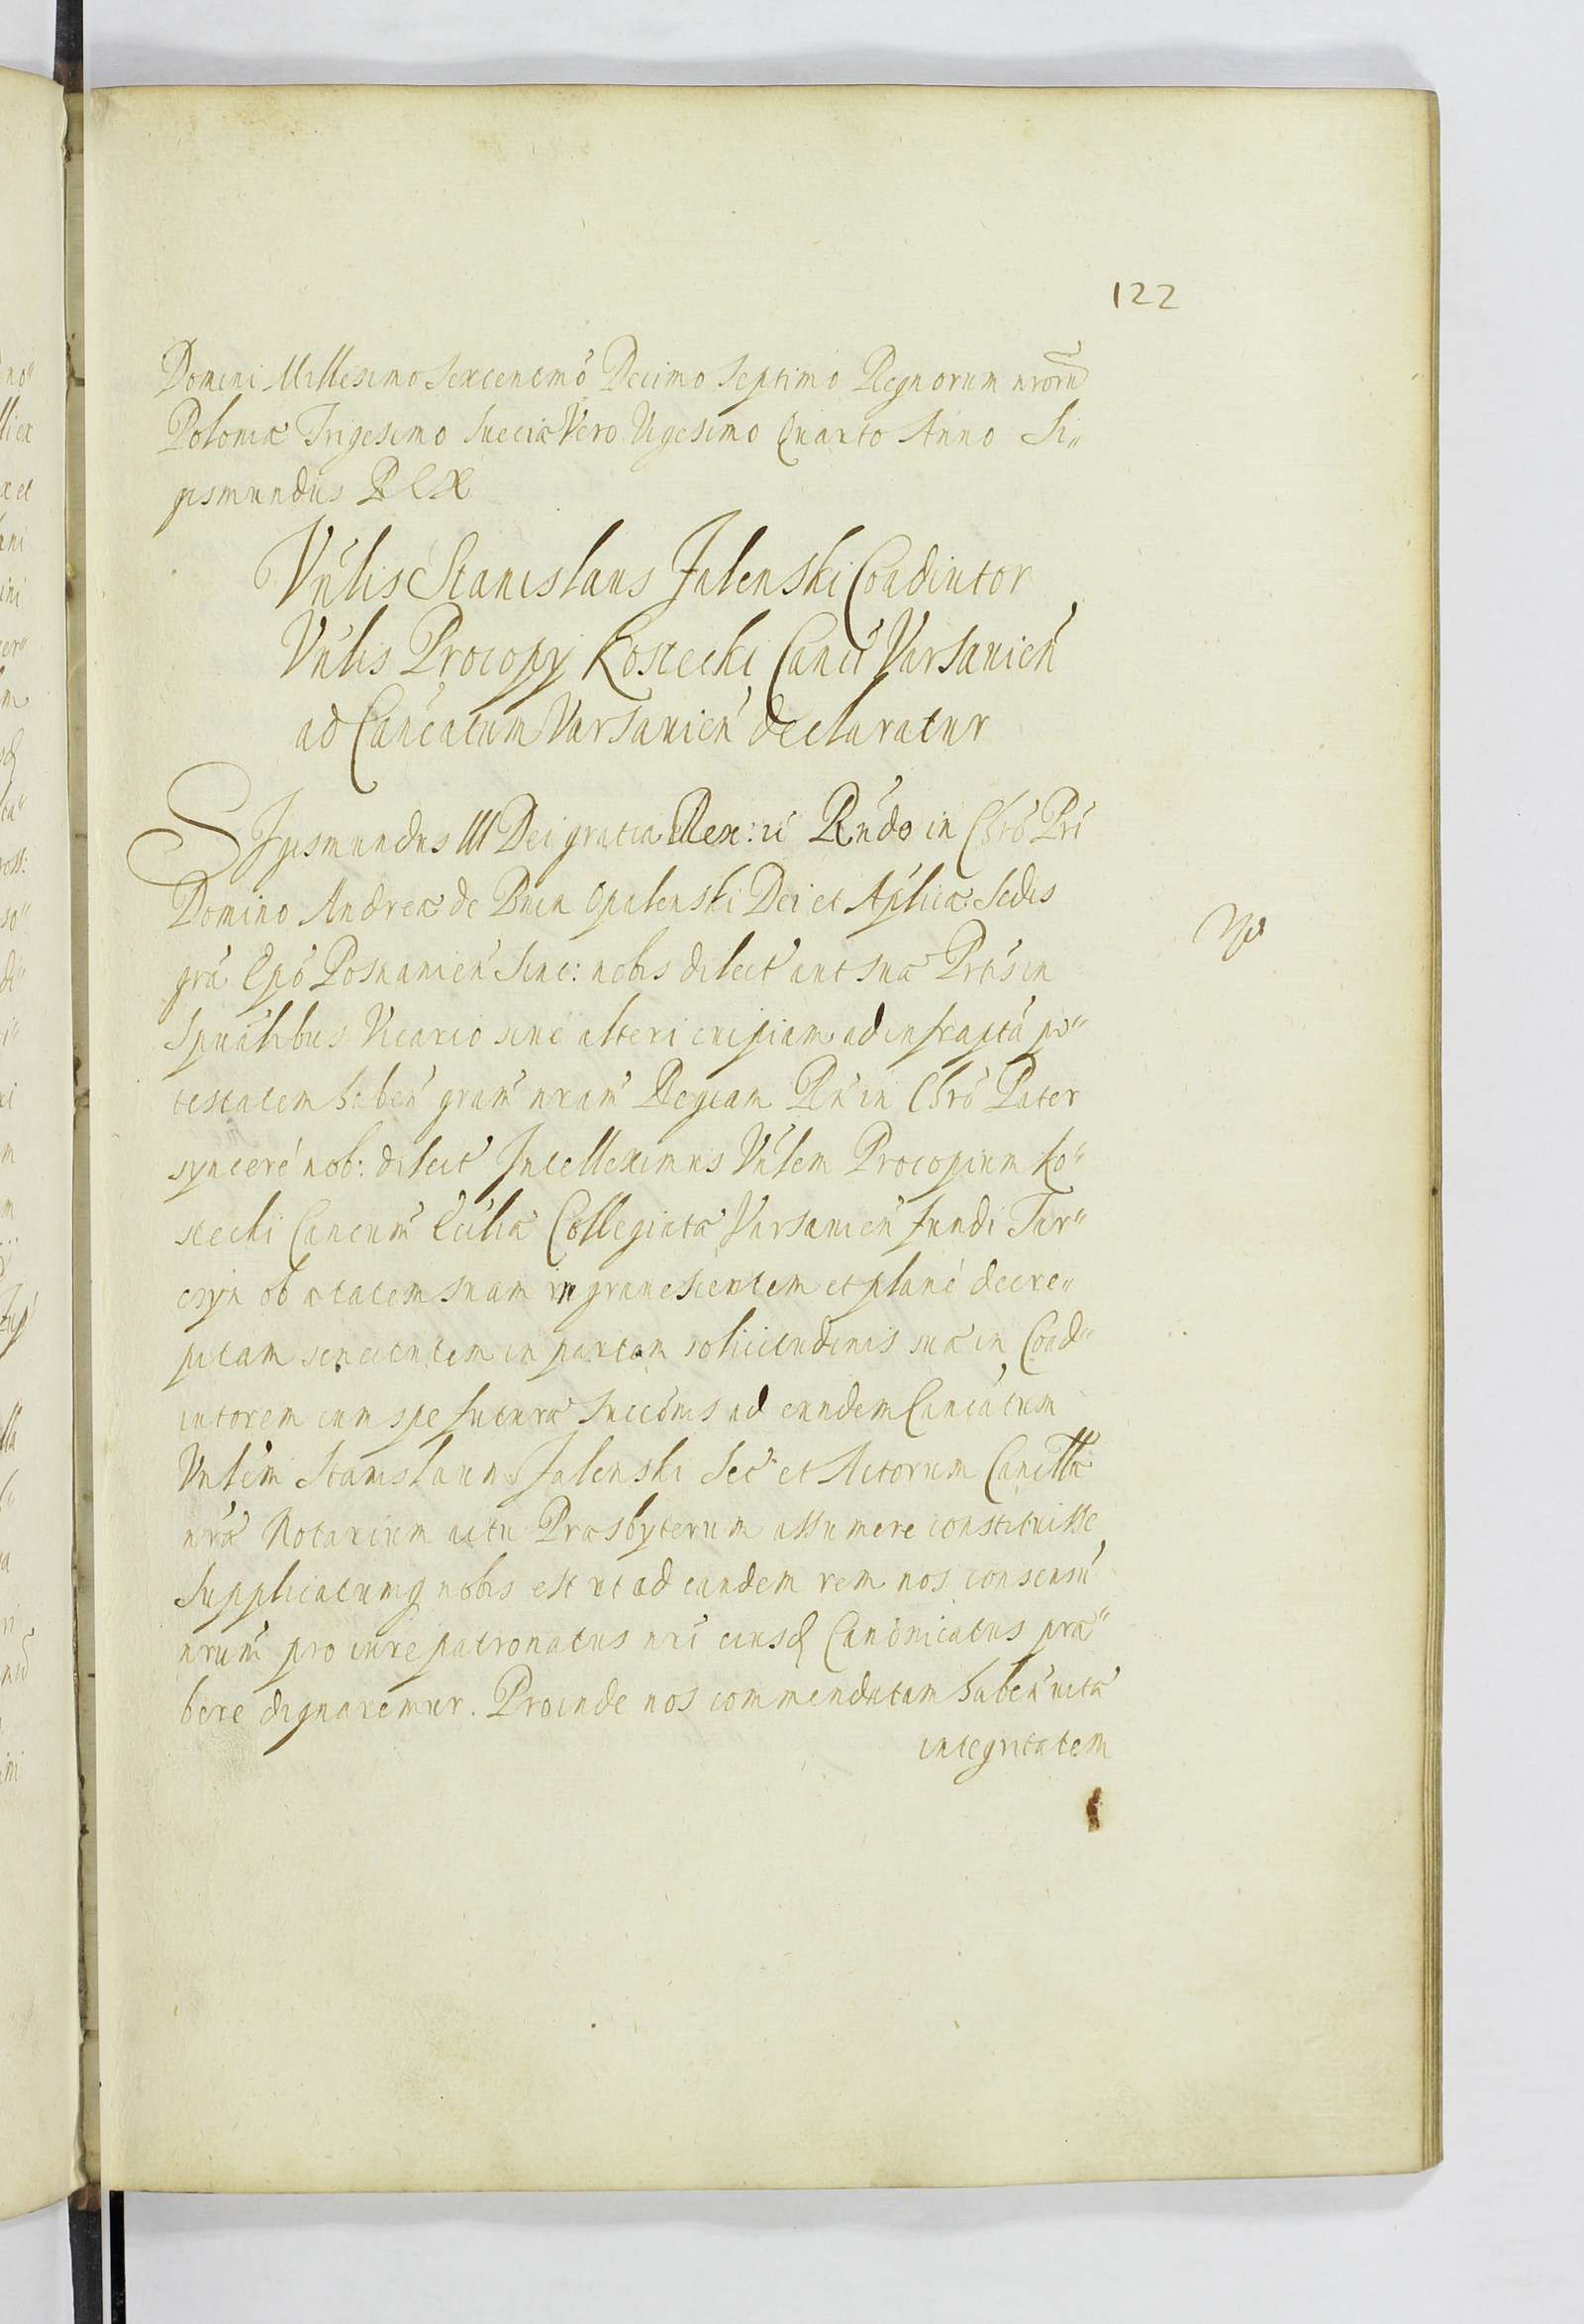 122
Domini Millesimo Sexcentmō Decimo Septimo Regnorum nrorū
Poloniæ Trigesimo Sueciæ Vero Vigesimo Quarto Anno Si„
gismundus Rex
Vnlis Stanislaus Jalenski Coadiutor
Vnlis Procopy Kostecki Canci Varsauien̄
ad Cancatum Varsauien̄ declaratur
SIgismundus III Dei gratia Rex: ti Rn̄do in Chrō Pri
Domino Andreæ de Bnin Opalenski Dei et Aplicæ Sedis
grā Epō Posnanien̄ Sinc: nobis dilect̄ aut suæ Prtis in
Spūalibus Vicario siue alteri cuipiam ad infraptā po„
testatem haben̄ gram̄ nram̄ Regiam Rn̄ in Chrō Pater
synceré nob: dilect̄ Intelleximus Vnlem Procopium Ko„
stecki Cancum̄ Eccliæ Collegiatæ Varsauien̄ fundi Tar„
czyn ob ætatem suam ingrauescentem et plané decre„
pitam senectutem in partem solicitudinis suæ in Coad„
iutorem cum spe futuræ succōnis ad eundem Cancātum
Vnlem Stanislaum Jalenski Sec̄ et Actorum Cancllæ
nr̄æ Notarium actu Præsbyterum assumere constituisse
Supplicatumq nobis est ut ad eandem rem nos consensū
nrum̄ pro iure patronatus nri eiusd Canōnicatus præ„
bere dignaremur. Proinde nos commendatam haben̄ uitæ
integritatem